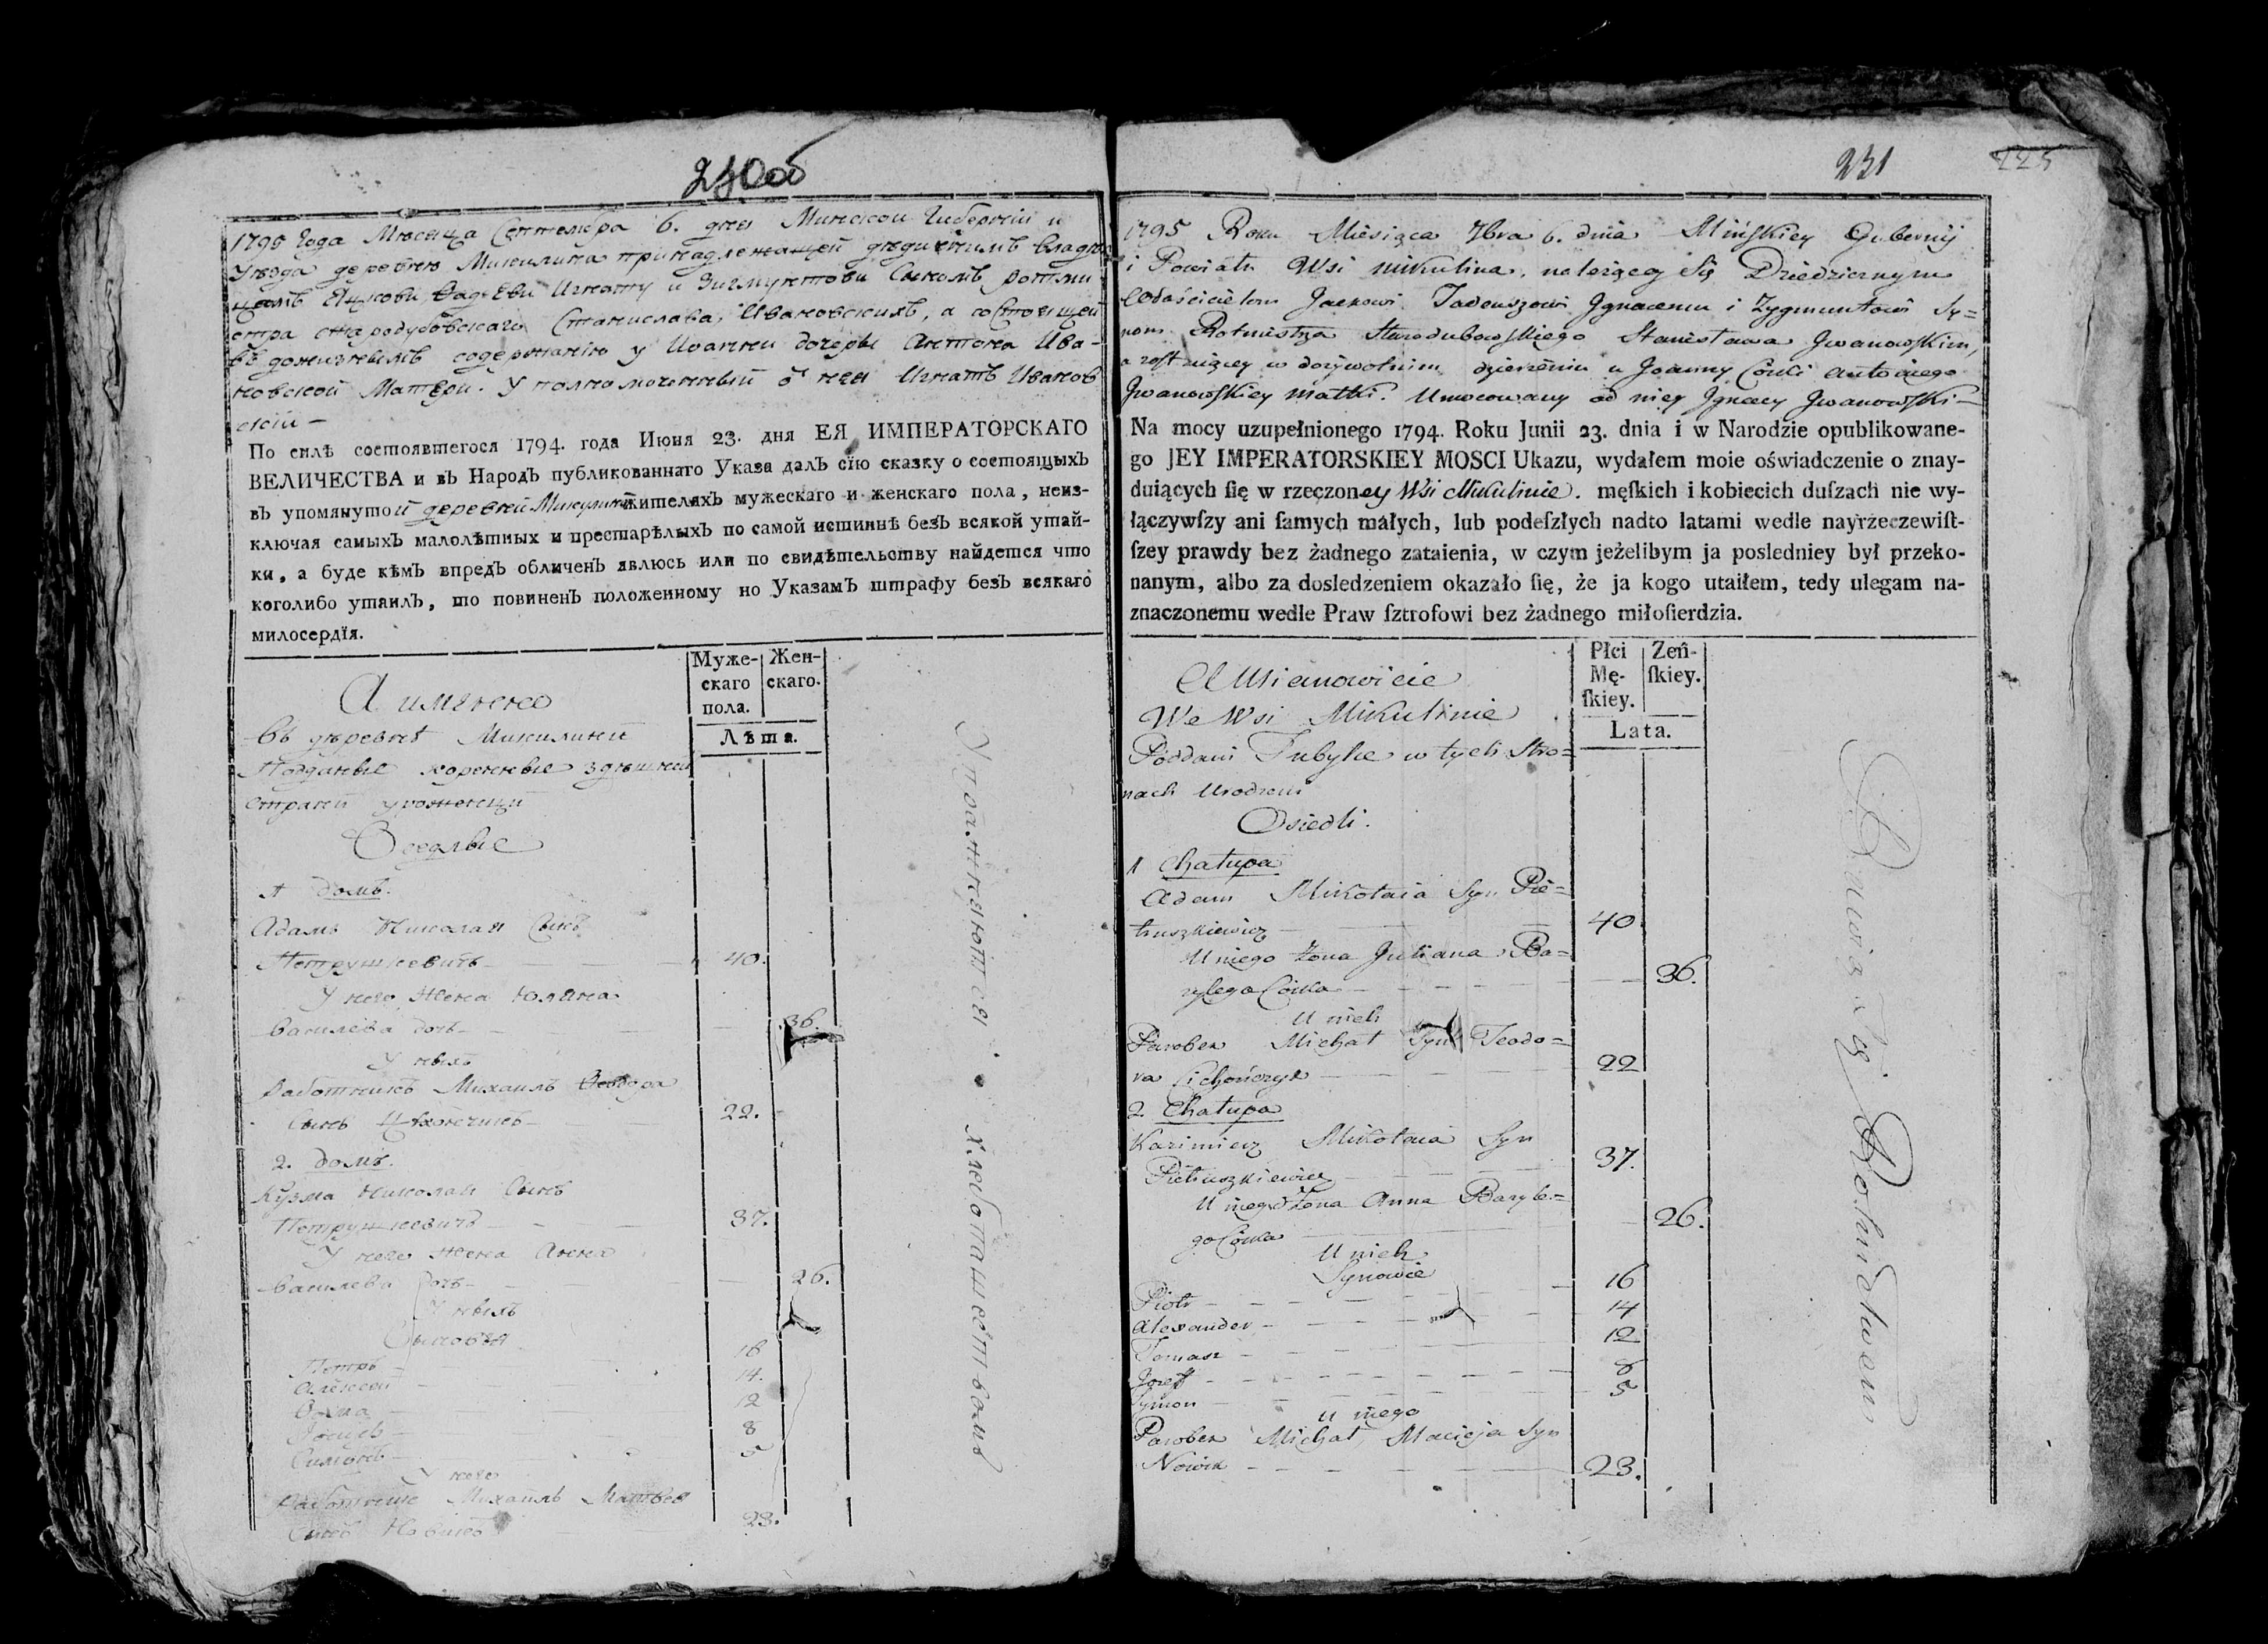 230об
1795 года Месяца Сентебра 6. дня Минской Губернїи и
Уезда деревню Микулина принадлежащей дедичнимъ владел-
цамъ Яцкови Фадѣеви Игнату и Зигмунтови Сыномъ ротми
стра стародубовскаго Станислава Ивановскихъ, а состоящей
въ дожизнымъ содержанїю у Иоанни дочеры Антона Ива-
новской Матери. Уполномоченный ѿ нея Игнатъ Иванов
скїй –
По силѣ состоявшегося 1794. года Июня 23. дня ЕЯ ИМПЕРАТОРСКАГО
ВЕЛИЧЕСТВА и въ НародЪ публикованнаго Указа далЪ сїю сказку о состоящыхЪ
въ упомянутой деревней Микулини жителяхЪ мужескаго и женскаго пола, неиз-
ключая самыхЪ малолѣтныхЪ и престарѣлыхЪ по самой истиннѣ безЪ всякой утай-
ки, а буде кѣмЪ впредЪ обличенЪ явлюсь или по свидѣтельству найдется что
коголибо утаилЪ, то повиненЪ положенному но УказамЪ штрафу безЪ всякаго
милосердїя.
Муже-
скаго
пола.
Жен-
скаго.
Лѣта.
А имянно
Въ деревне Микулиней
Подданые коренные здешней
страней уроженци
Оседлые
1 домъ.
Адамъ Николая Сынъ
Петрушкевичъ – 40.
У него жена Юляна
Василева дочь – 36.
У ныхъ
работникъ Михаилъ Феодора
Сынъ Цихончикъ – 22.
2. домъ.
Кузма Николая Сынъ
Петрушкевичъ – 37.
У него жена Анна
Василева дочь – 26.
У ныхъ
Сыновья
Петръ – 16
Алексей – 14.
Фома – 12
Іосифъ – 8
Симонъ – 5
У него
работникъ Михаилъ Матвея
Сынъ Новикъ 23.
Упражняются хлебопашествомъ
231
125
1795 Roku Miesiąca 7bra 6. dnia Mińskiey Gubernij
i Powiatu Wsi Mikulina, należącey się Dziedzicznym
Właścicielom Jackowi Tadeuszowi Jgnacemu i Zygmuntowi Sy=
nom Rotmistrza Starodubowskiego Stanisława Jwanowskim,
a zostaiącey w dożywotnim dzierżeniu u Joanny Córki Antoniego
Jwanowskiey Matki. Umocowany od niey Jgnacy Jwanowski –
Na mocy uzupełnionego 1794. Roku Junii 23. dnia i w Narodzie opublikowane-
go JEY IMPERATORSKIEY MOSCI Ukazu, wydałem moie oświadczenie o znay-
duiących ſię w rzeczoney Wsi Mikulinie. męſkich i kobiecich duſzach nie wy-
łączywſzy ani ſamych małych, lub podeſzłych nadto latami wedle nayrzeczewiſt-
ſzey prawdy bez żadnego zataienia, w czym jeżelibym ja posledniey był przeko-
nanym, albo za dosledzeniem okazało ſię, że ja kogo utaiłem, tedy ulegam na-
znaczonemu wedle Praw ſztrofowi bez żadnego miłoſierdzia.
Płci
Mę-
ſkiey.
Zeń-
ſkiey.
Lata.
A Mianowicie
We Wsi Mikulinie
Poddani Tubylce w tych Stro=
nach Urodzeni
Osiedli.
1 Chałupa
Adam Mikołaia Syn Pie=
truszkiewicz – 40.
U niego Żona Juliana Ba=
zylego Córka – 36.
U nich
Parobek Michał Syn Teodo=
ra Cichończyk – 22
2. Chałupa
Kazimierz Mikołaia Syn
Pietruszkiewicz – 37.
U niego Żona Anna Bazyle=
go Córka 26.
U nich
Synowie
Piotr – 16
Alexander – 14
Tomasz – 12
Jozef – 8
Symon – 5
U niego
Parobek Michał Macieja Syn
Nowik – 23.
Bawią się Rolnictwem